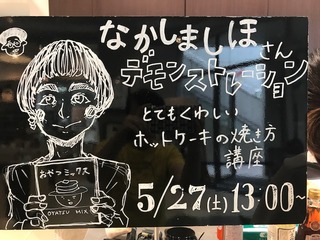 なかしましほさん
デモンストレーション
とてもくわしい
ホットケーキの焼き方
講座
5/27(土) 13:00~
おやつミックス
OYATSU MIX